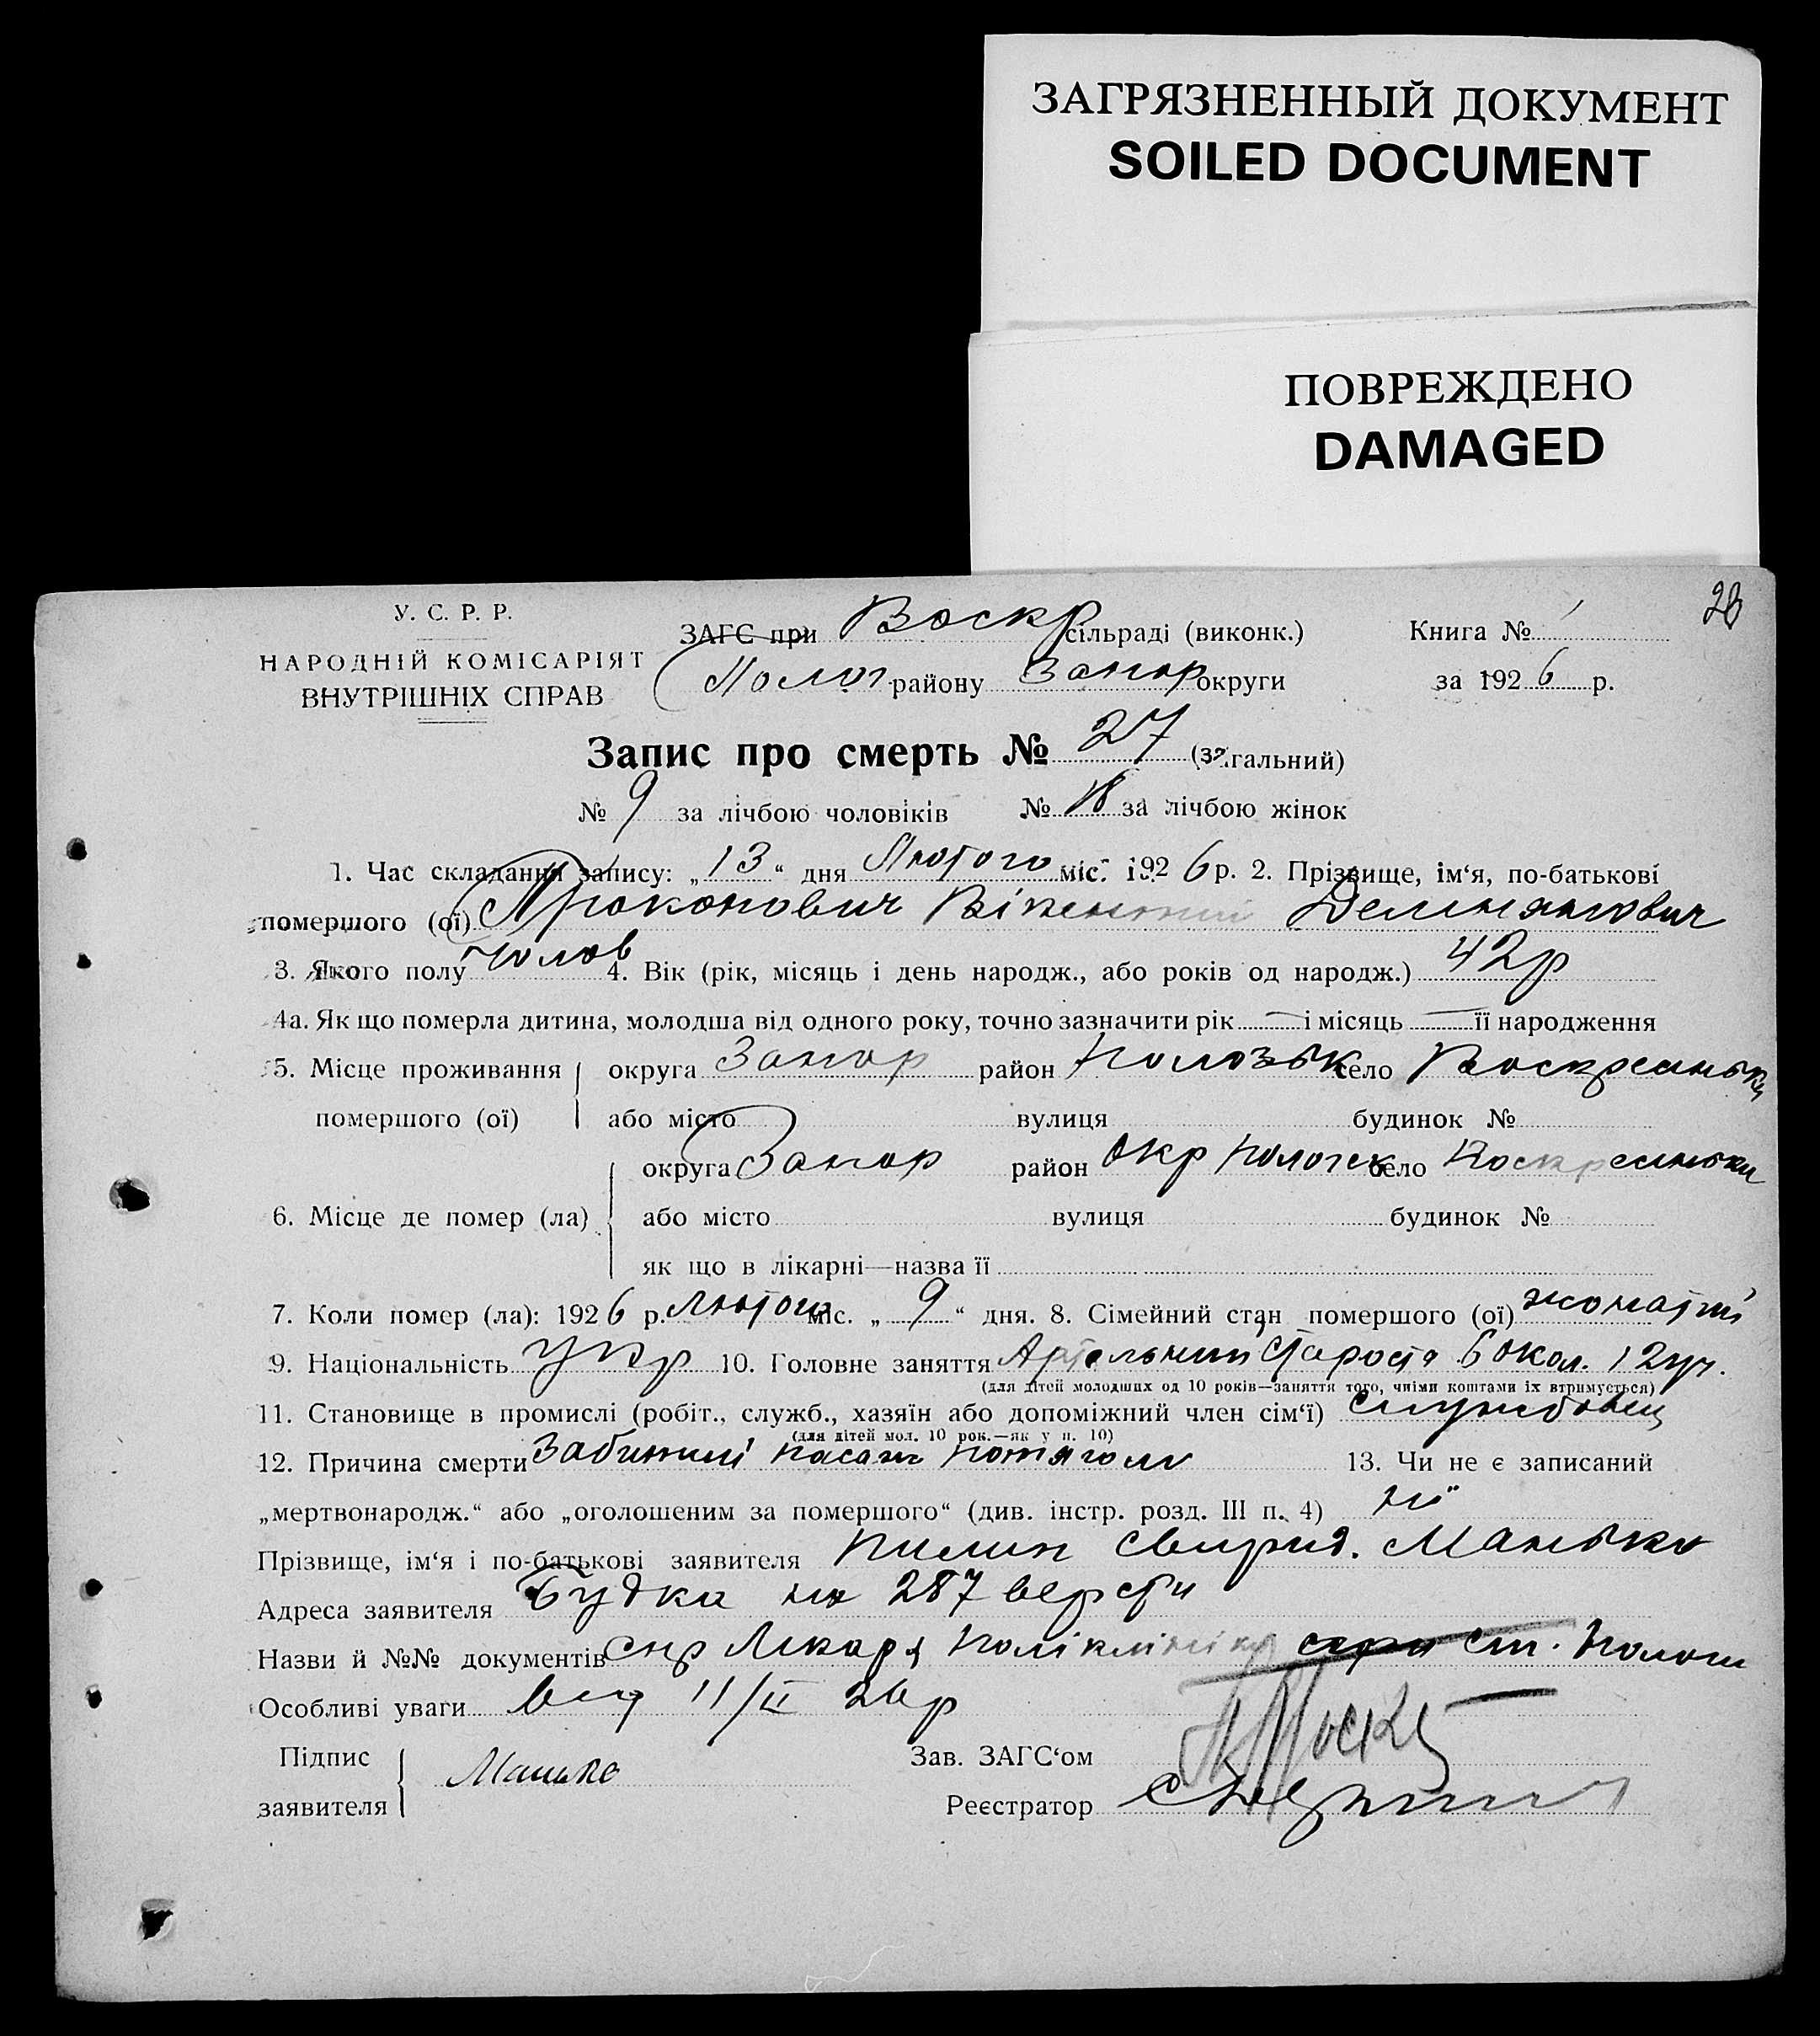 ЗАГРЯЗНЕННЫЙ ДОКУМЕНТ
SOILED DOCUMENT
ПОВРЕЖДЕНО
DAMAGED
28
У. С. Р. Р.
НАРОДНІЙ КОМІСАРІЯТ
ВНУТРІШНІХ СПРАВ
ЗАГС при Воскр сільраді (виконк.)
Полог району Запор округи
Книга №
за 1926 р.
Запис про смерть № 27 (загальний)
№ 9 за лічбою чоловіків № 18 за лічбою жінок
1. Час складання запису: „13“ дня Лютого міс. 1926 р. 2. Прізвище, ім‘я, по-батькові
помершого (ої) Прокопович Вікентий
3. Якого полу Чолов 4. Вік (рік, місяць і день народж., або років од народж.) 42р
4а. Як що померла дитина, молодша від одного року, точно зазначити рік — і місяць — її народження
5. Місце проживання помершого (ої) округа Запор район Пологськ село Воскресеньки
або місто вулиця будинок №
6. Місце де помер (ла) округа Запор район окр Пологск село Воскресеньки
або місто вулиця будинок №
як що в лікарні—назва її
7. Коли помер (ла): 1926 р. Лютого міс. „9“ дня. 8. Сімейний стан помершого (ої) жонатий
9. Національність укр 10. Головне заняття Артельний Староста 6 окол. 12 уч.
(для дітей молодших од 10 років—заняття того, чиїми коштами їх втримується)
11. Становище в промислі (робіт., служб., хазяїн або допоміжний член сім‘ї) службовец
(для дітей мол. 10 рок.—як у п. 10)
12. Причина смерти Забитий пасаж потягом 13. Чи не є записаний
„мертвонародж.“ або „оголошеним за помершого“ (див. інстр. розд. III п. 4) ні
Прізвище, ім‘я і по-батькові заявителя Пилип Свирид. Манько
Адреса заявителя Будка на 287 версти
Назви й №№ документів Лікаря Поліклініки ст. Пологи
Особливі уваги від 11/II 26р
Підпис заявителя Манько
Зав. ЗАГС‘ом
Реєстратор